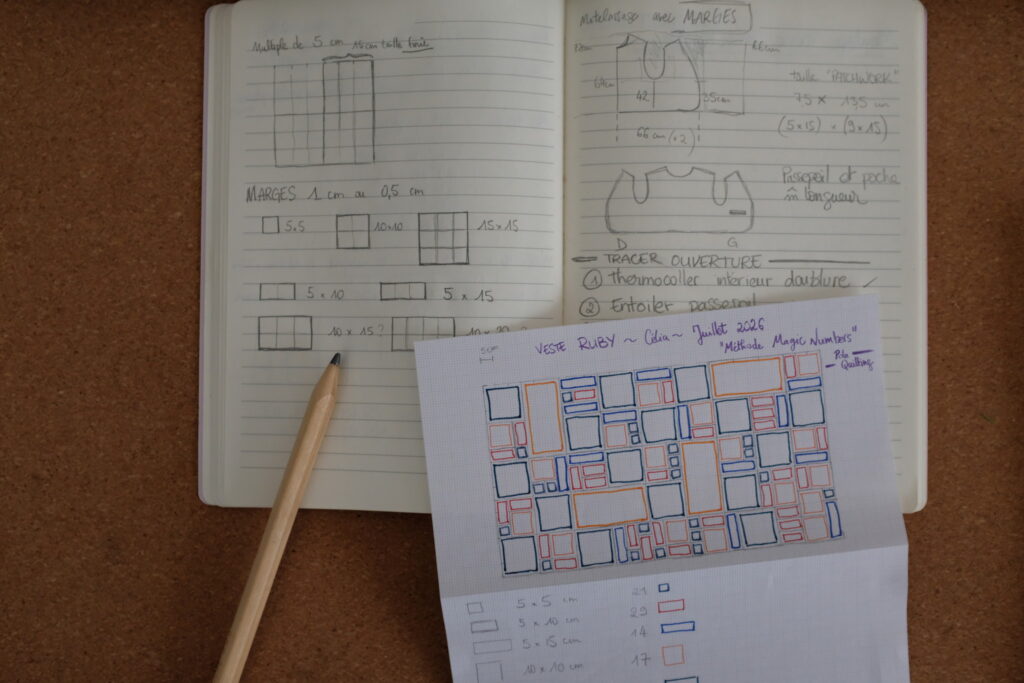 Multiple de 5 cm 15 cm taille finie
MARGES 1 cm ou 0,5 cm
5x5
10x10
15 x 15
5 x 10
5 x 15
10 x 15 ?
Matelassage avec MARGES
64cm
42
35cm
66 cm (x2)
taille "PATCHWORK"
75 x 135 cm
(5x15) x (9x15)
Passepoil et poche
in longueur
D
G
TRACER OUVERTURE
① Thermocoller intérieur doublure
② Entoiler passepoil
5cm
VESTE RUBY ~ Célia ~ Juillet 2026
"Méthode Magic Numbers"
Quilting
5 x 5 cm
5 x 10 cm
5 x 15 cm
10 x 10 cm
21
29
14
17